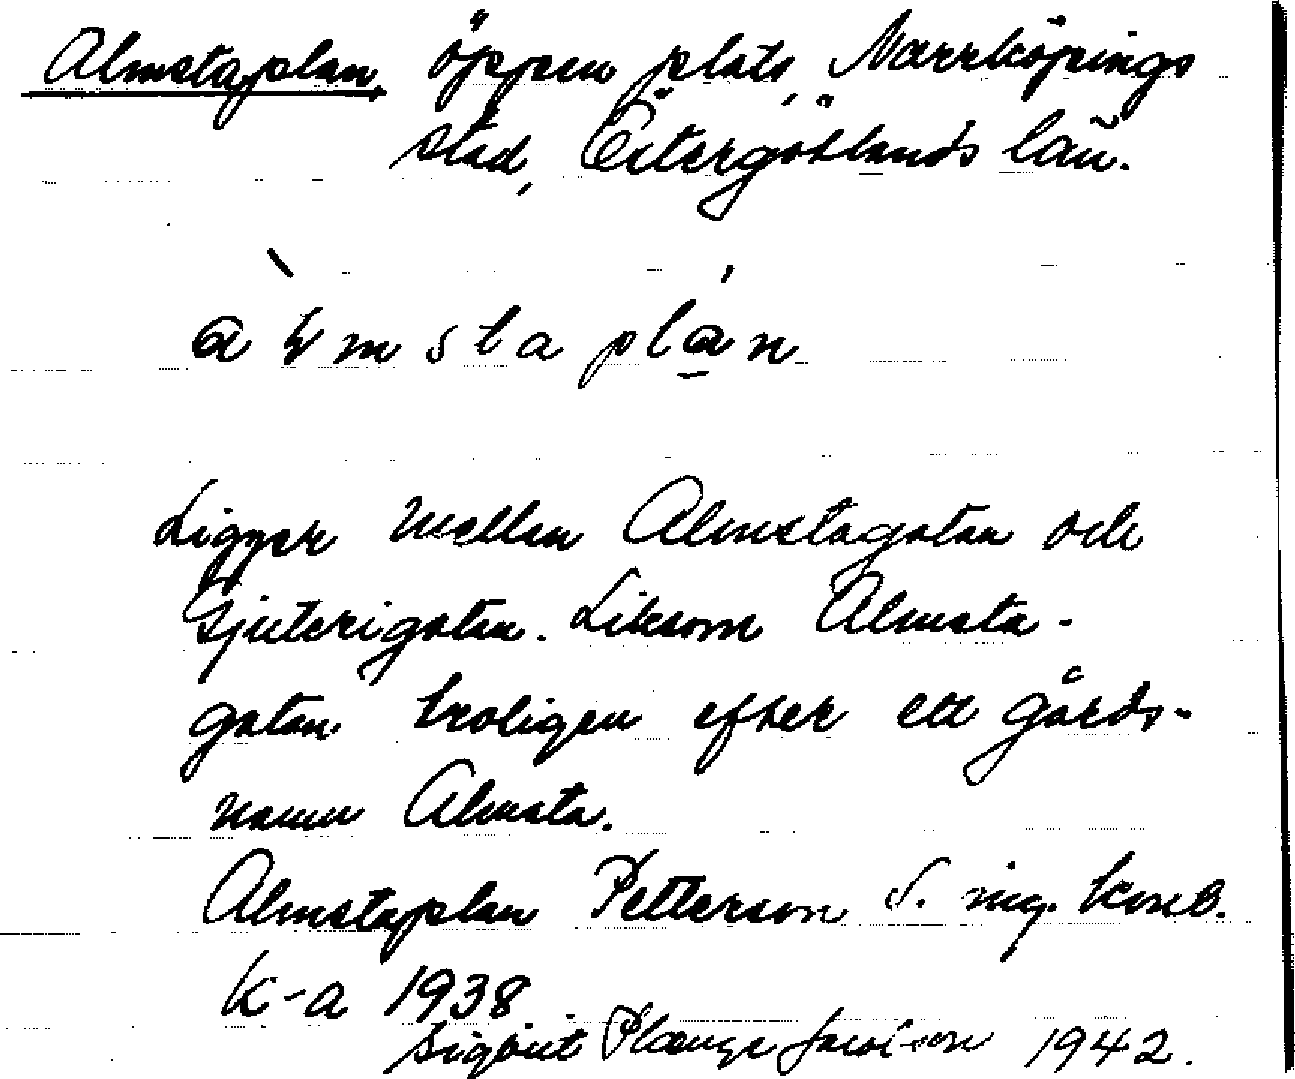 Almstaplan, öppen plats, Norrköpings
stad, Östergötlands län.
àłmstaplán
Ligger mellan Almstagatan och
Gjuterigatan. Liksom Almsta-
gatan troligen efter ett gårds-
namn Almsta.
Almstaplan Petterson S. ing. konb.
K-a 1938
Sigbrit Plænge Jacobson 1942.